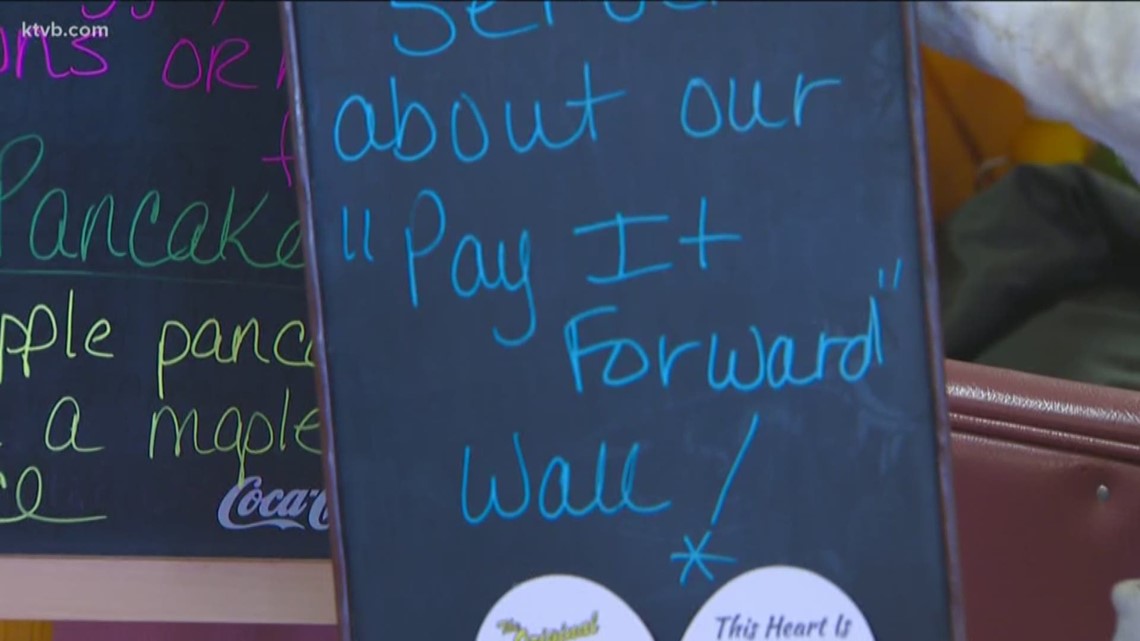 ktvb.com
OR
Pancake
pple panc
a maple
Coca-C
about our
"Pay It
Forward"
Wall!
The Original
This Heart Is